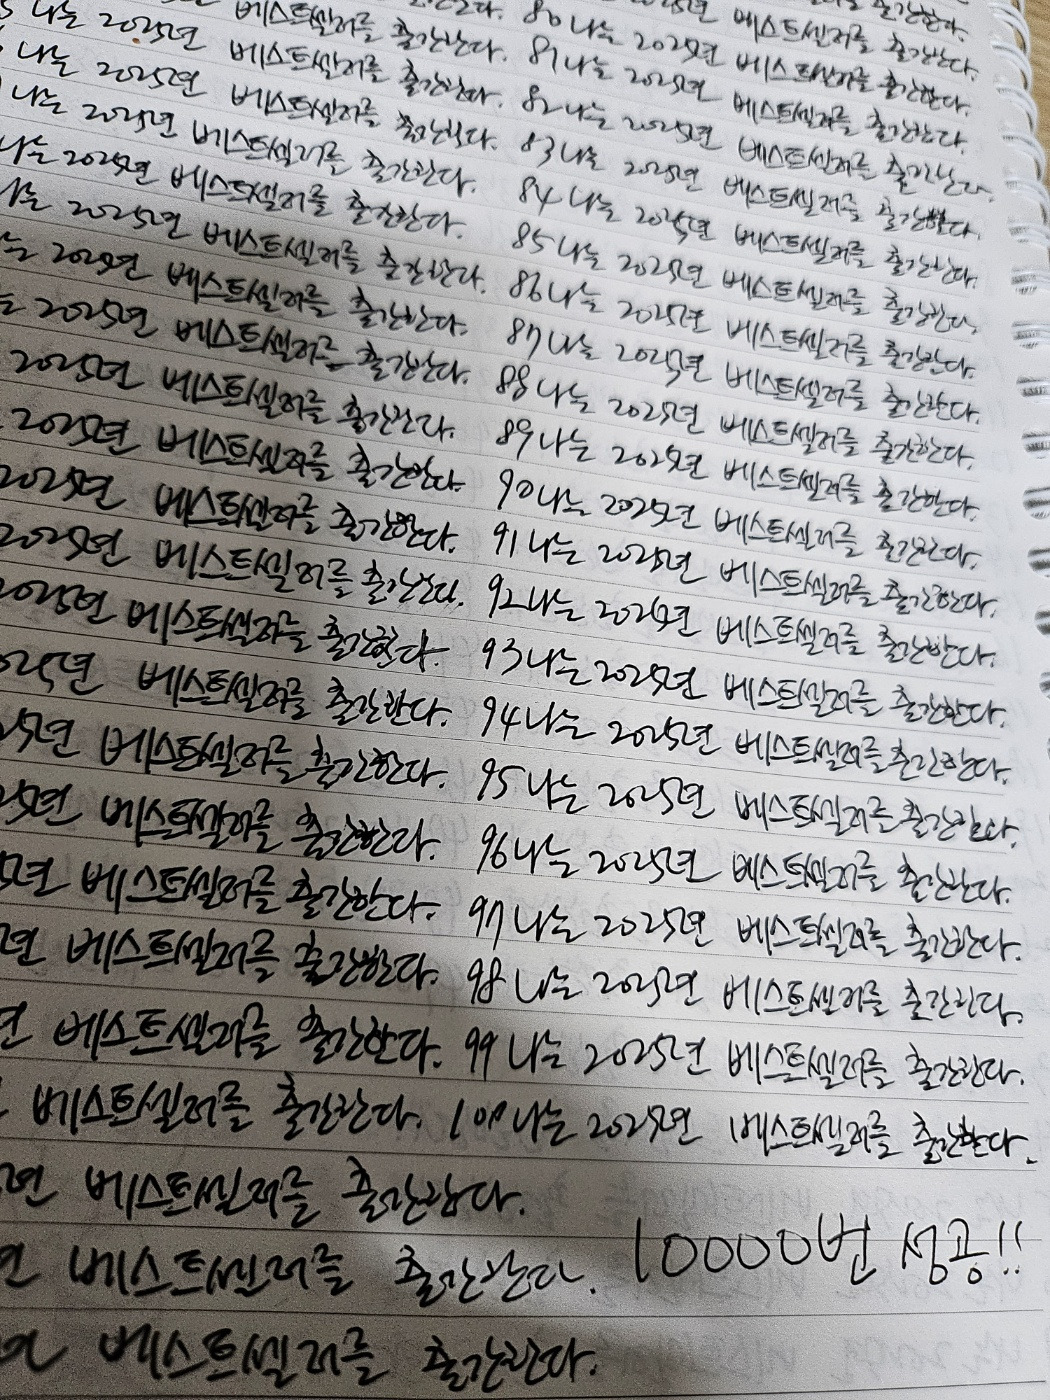 나는 2025년 베스트셀러를 출간한다. 80 나는 2025년 베스트셀러를 출간한다.
나는 2025년 베스트셀러를 출간한다. 81 나는 2025년 베스트셀러를 출간한다.
나는 2025년 베스트셀러를 출간한다. 82 나는 2025년 베스트셀러를 출간한다.
나는 2025년 베스트셀러를 출간한다. 83 나는 2025년 베스트셀러를 출간한다.
나는 2025년 베스트셀러를 출간한다. 84 나는 2025년 베스트셀러를 출간한다.
는 2025년 베스트셀러를 출간한다. 85 나는 2025년 베스트셀러를 출간한다.
는 2025년 베스트셀러를 출간한다. 86 나는 2025년 베스트셀러를 출간한다.
2025년 베스트셀러를 출간한다. 87 나는 2025년 베스트셀러를 출간한다.
2025년 베스트셀러를 출간한다. 88 나는 2025년 베스트셀러를 출간한다.
2025년 베스트셀러를 출간한다. 89 나는 2025년 베스트셀러를 출간한다.
2025년 베스트셀러를 출간한다. 90 나는 2025년 베스트셀러를 출간한다.
2025년 베스트셀러를 출간한다. 91 나는 2025년 베스트셀러를 출간한다.
2025년 베스트셀러를 출간한다. 92 나는 2025년 베스트셀러를 출간한다.
025년 베스트셀러를 출간한다. 93 나는 2025년 베스트셀러를 출간한다.
25년 베스트셀러를 출간한다. 94 나는 2025년 베스트셀러를 출간한다.
25년 베스트셀러를 출간한다. 95 나는 2025년 베스트셀러를 출간한다.
5년 베스트셀러를 출간한다. 96 나는 2025년 베스트셀러를 출간한다.
년 베스트셀러를 출간한다. 97 나는 2025년 베스트셀러를 출간한다.
년 베스트셀러를 출간한다. 98 나는 2025년 베스트셀러를 출간한다.
베스트셀러를 출간한다. 99 나는 2025년 베스트셀러를 출간한다.
년 베스트셀러를 출간한다. 100 나는 2025년 베스트셀러를 출간한다.
베스트셀러를 출간한다. 10000번 성공!!
베스트셀러를 출간한다.